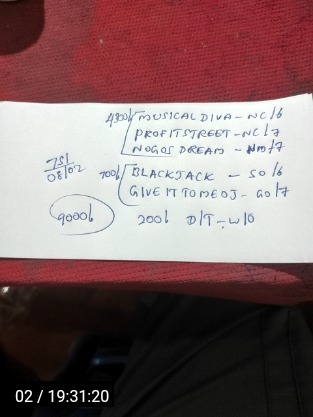 MUSICAL DIVA - NC/6
PROFITSTREET - NC/7
NOGOS DREAM -
7S1
08/02
BLACKJACK - SO/6
GIVE IT TO ME OJ - GO/7
9000/
200/ D/T - W/O
02 / 19:31:20